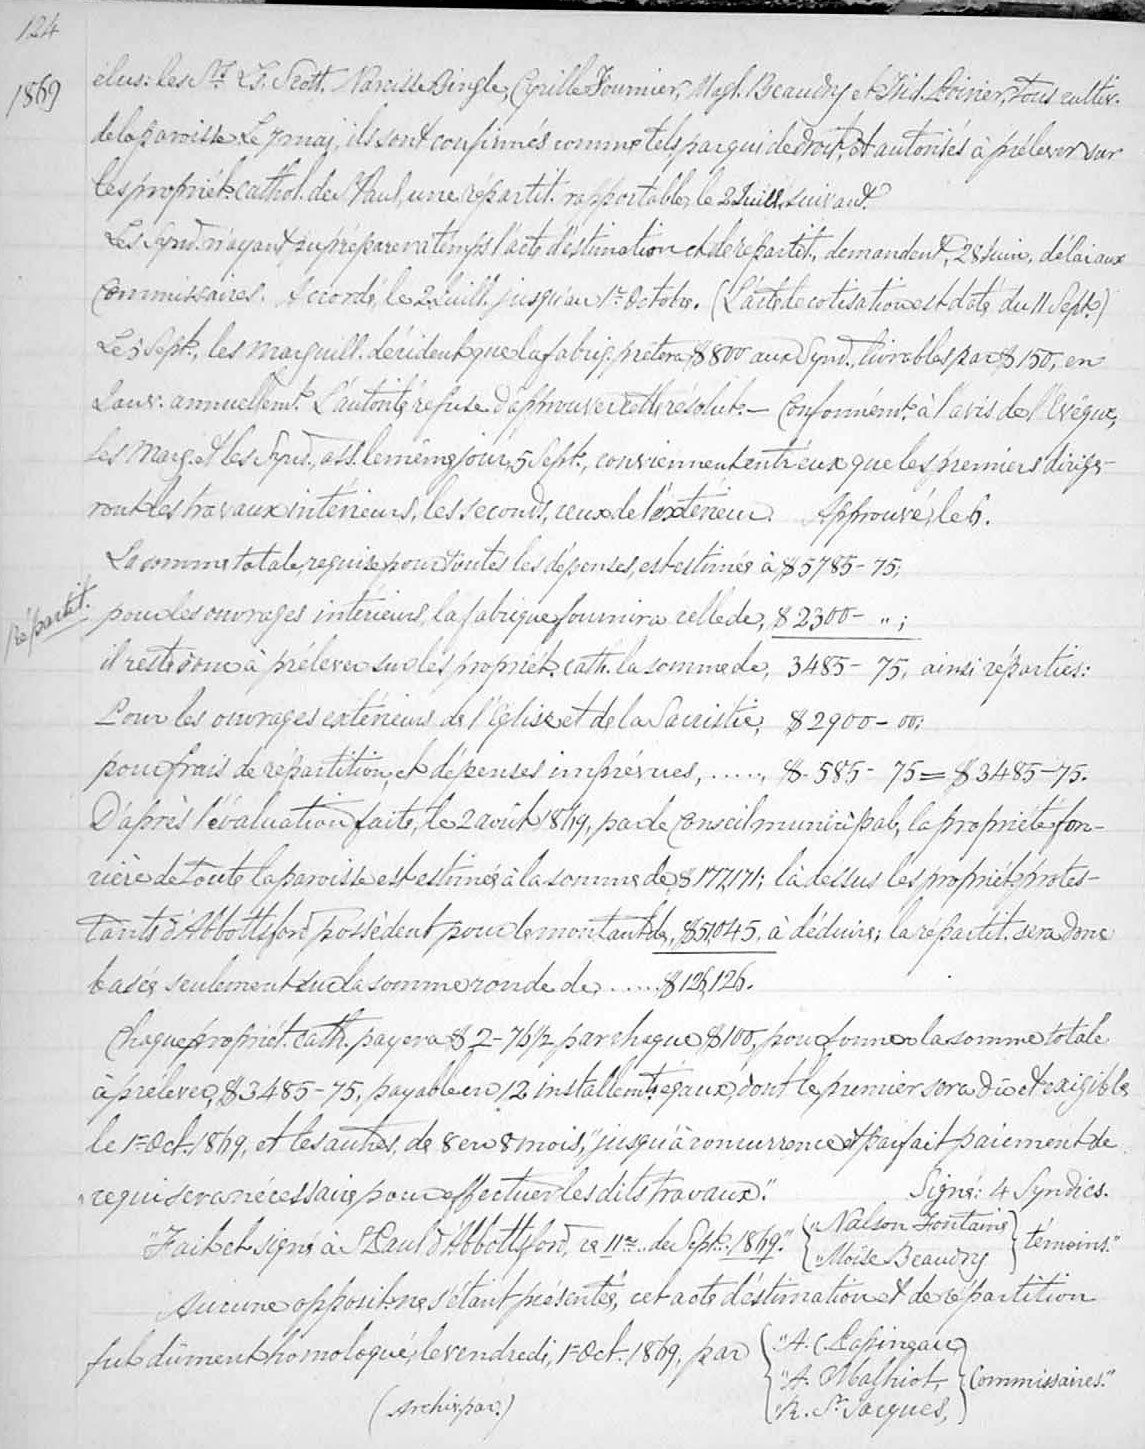 124
1869
élus: les Srs Ls. Scott, Narcisse Bingle, Cyrille Fournier, Magl. Beaudry et Isid. Poirier, tous cultiv.
de la paroisse. Le 7 mai, ils sont confirmés comme tels par qui de droit, et autorisés à prélever sur
les propriét. cathol. de St Paul, une répartit. rapportable, le 2 Juill. suivant.
Les Synd. n'ayant pu préparer à temps l'acte d'estimation et de répartit., demandent, 28 Juin, délai aux
Commissaires. Accordé, le 2 Juill. jusqu'au 1er Octobre. (L'acte de cotisation est daté du 11 Sept.)
Le 5 Sept., les marguill. décident que la fabriq. prêtera $800 aux Synd., livrables par $150, en
Janv. annuellemt. L'autorité refuse d'approuver cette résolut. – Conformémt. à l'avis de l'Evêque,
les Marg. et les Synd., ass. le même jour, 5 Sept., conviennent entr'eux que les premiers dirige-
ront les travaux intérieurs, les seconds, ceux de l'extérieur. Approuvé, le 6.
La somme totale, requise pour toutes les dépenses, est estimée à $5785-75;
Répartit.
pour les ouvrages intérieurs, la fabrique fournira celle de, $2300- „ ;
il reste donc à prélever sur les propriét. cath. la somme de, 3485-75, ainsi réparties:
Pour les ouvrages extérieurs de l'Eglise et de la Sacristie, $2900-00;
pour frais de répartition, et dépenses imprévues, ....., $.585-75 = $3485-75.
D'après l'évaluation faite, le 2 août 1869, par le Conseil municipal, la propriété fon-
cière de toute la paroisse est estimée à la somme de $177,171; là dessus les propriét. protes-
tants d'Abbottsford possèdent pour le montant de, $51,045, à déduire; la répartit. sera donc
basée seulement sur la somme ronde de ..... $126,126.
Chaque propriét. cath. payera $2-76 1/2 par chaque $100, pour former la somme totale
à prélever, $3485-75, payable en 12 installemts égaux, dont le premier sera dû et exigible
le 1er Oct. 1869, et les autres, de 8 en 8 mois, "jusqu'à concurrence et parfait paiement de
ce qui sera nécessaire pour effectuer les dits travaux." Signé: 4 Syndics.
"Fait et signé à St Paul d'Abbottsford, ce 11me .. de Sept. 1869." { "Nalson Fontaine
"Moïse Beaudry } témoins."
Aucune opposit. ne s'étant présentée, cet acte d'estimation et de répartition
fut dûment homologué, le vendredi, 1er Oct. 1869, par { "A. C. Papineau
"A. Malhiot,
"R. St Jacques, } Commissaires."
(Archiv. par.)